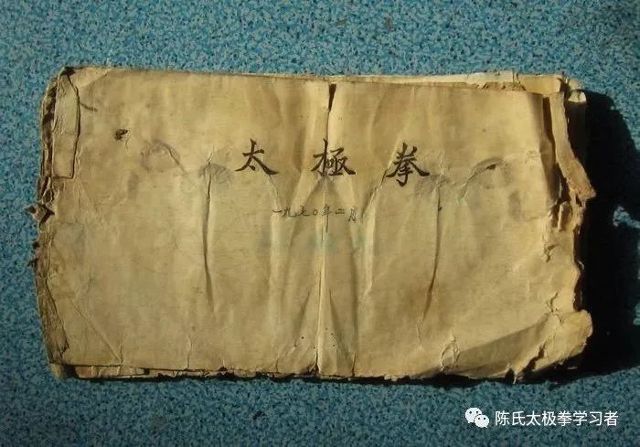 太極拳
一九七〇年二月
陈氏太极拳学习者